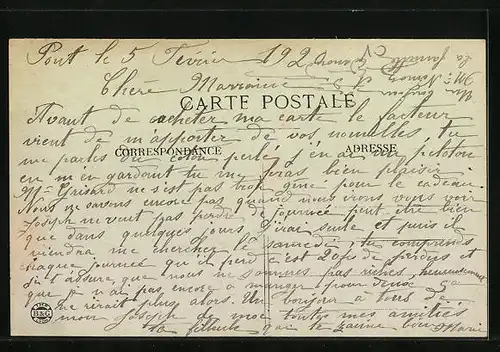 Pont le 5 Février 192
Chère Marraine
CARTE POSTALE
Avant de cacheter ma carte le facteur
vient de m'apporter de vos nouvelles, tu
CORRESPONDANCE
ADRESSE
me parles du coton perlé j'en ai un peloton
en m'en gardant tu me feras bien plaisir
ne s'est pas trop gêné pour le cadeau.
Nous ne savons encore pas quand nous irons vous voir
Joseph ne veut pas perdre de journée peut être bien
que dans quelques jours j'irai seule et puis il
viendra me chercher le samedi, tu comprends
chaque journée qu'il perd c'est 20fs de perdus et
je t'assure que nous ne sommes pas riches, heureusement
que je n'ai pas encore à manger pour deux ça
n'irait plus alors. Un bonjour à tous de
mon Joseph de moi toutes mes amitiés
ta filleule qui t'aime bien Marie
B&G